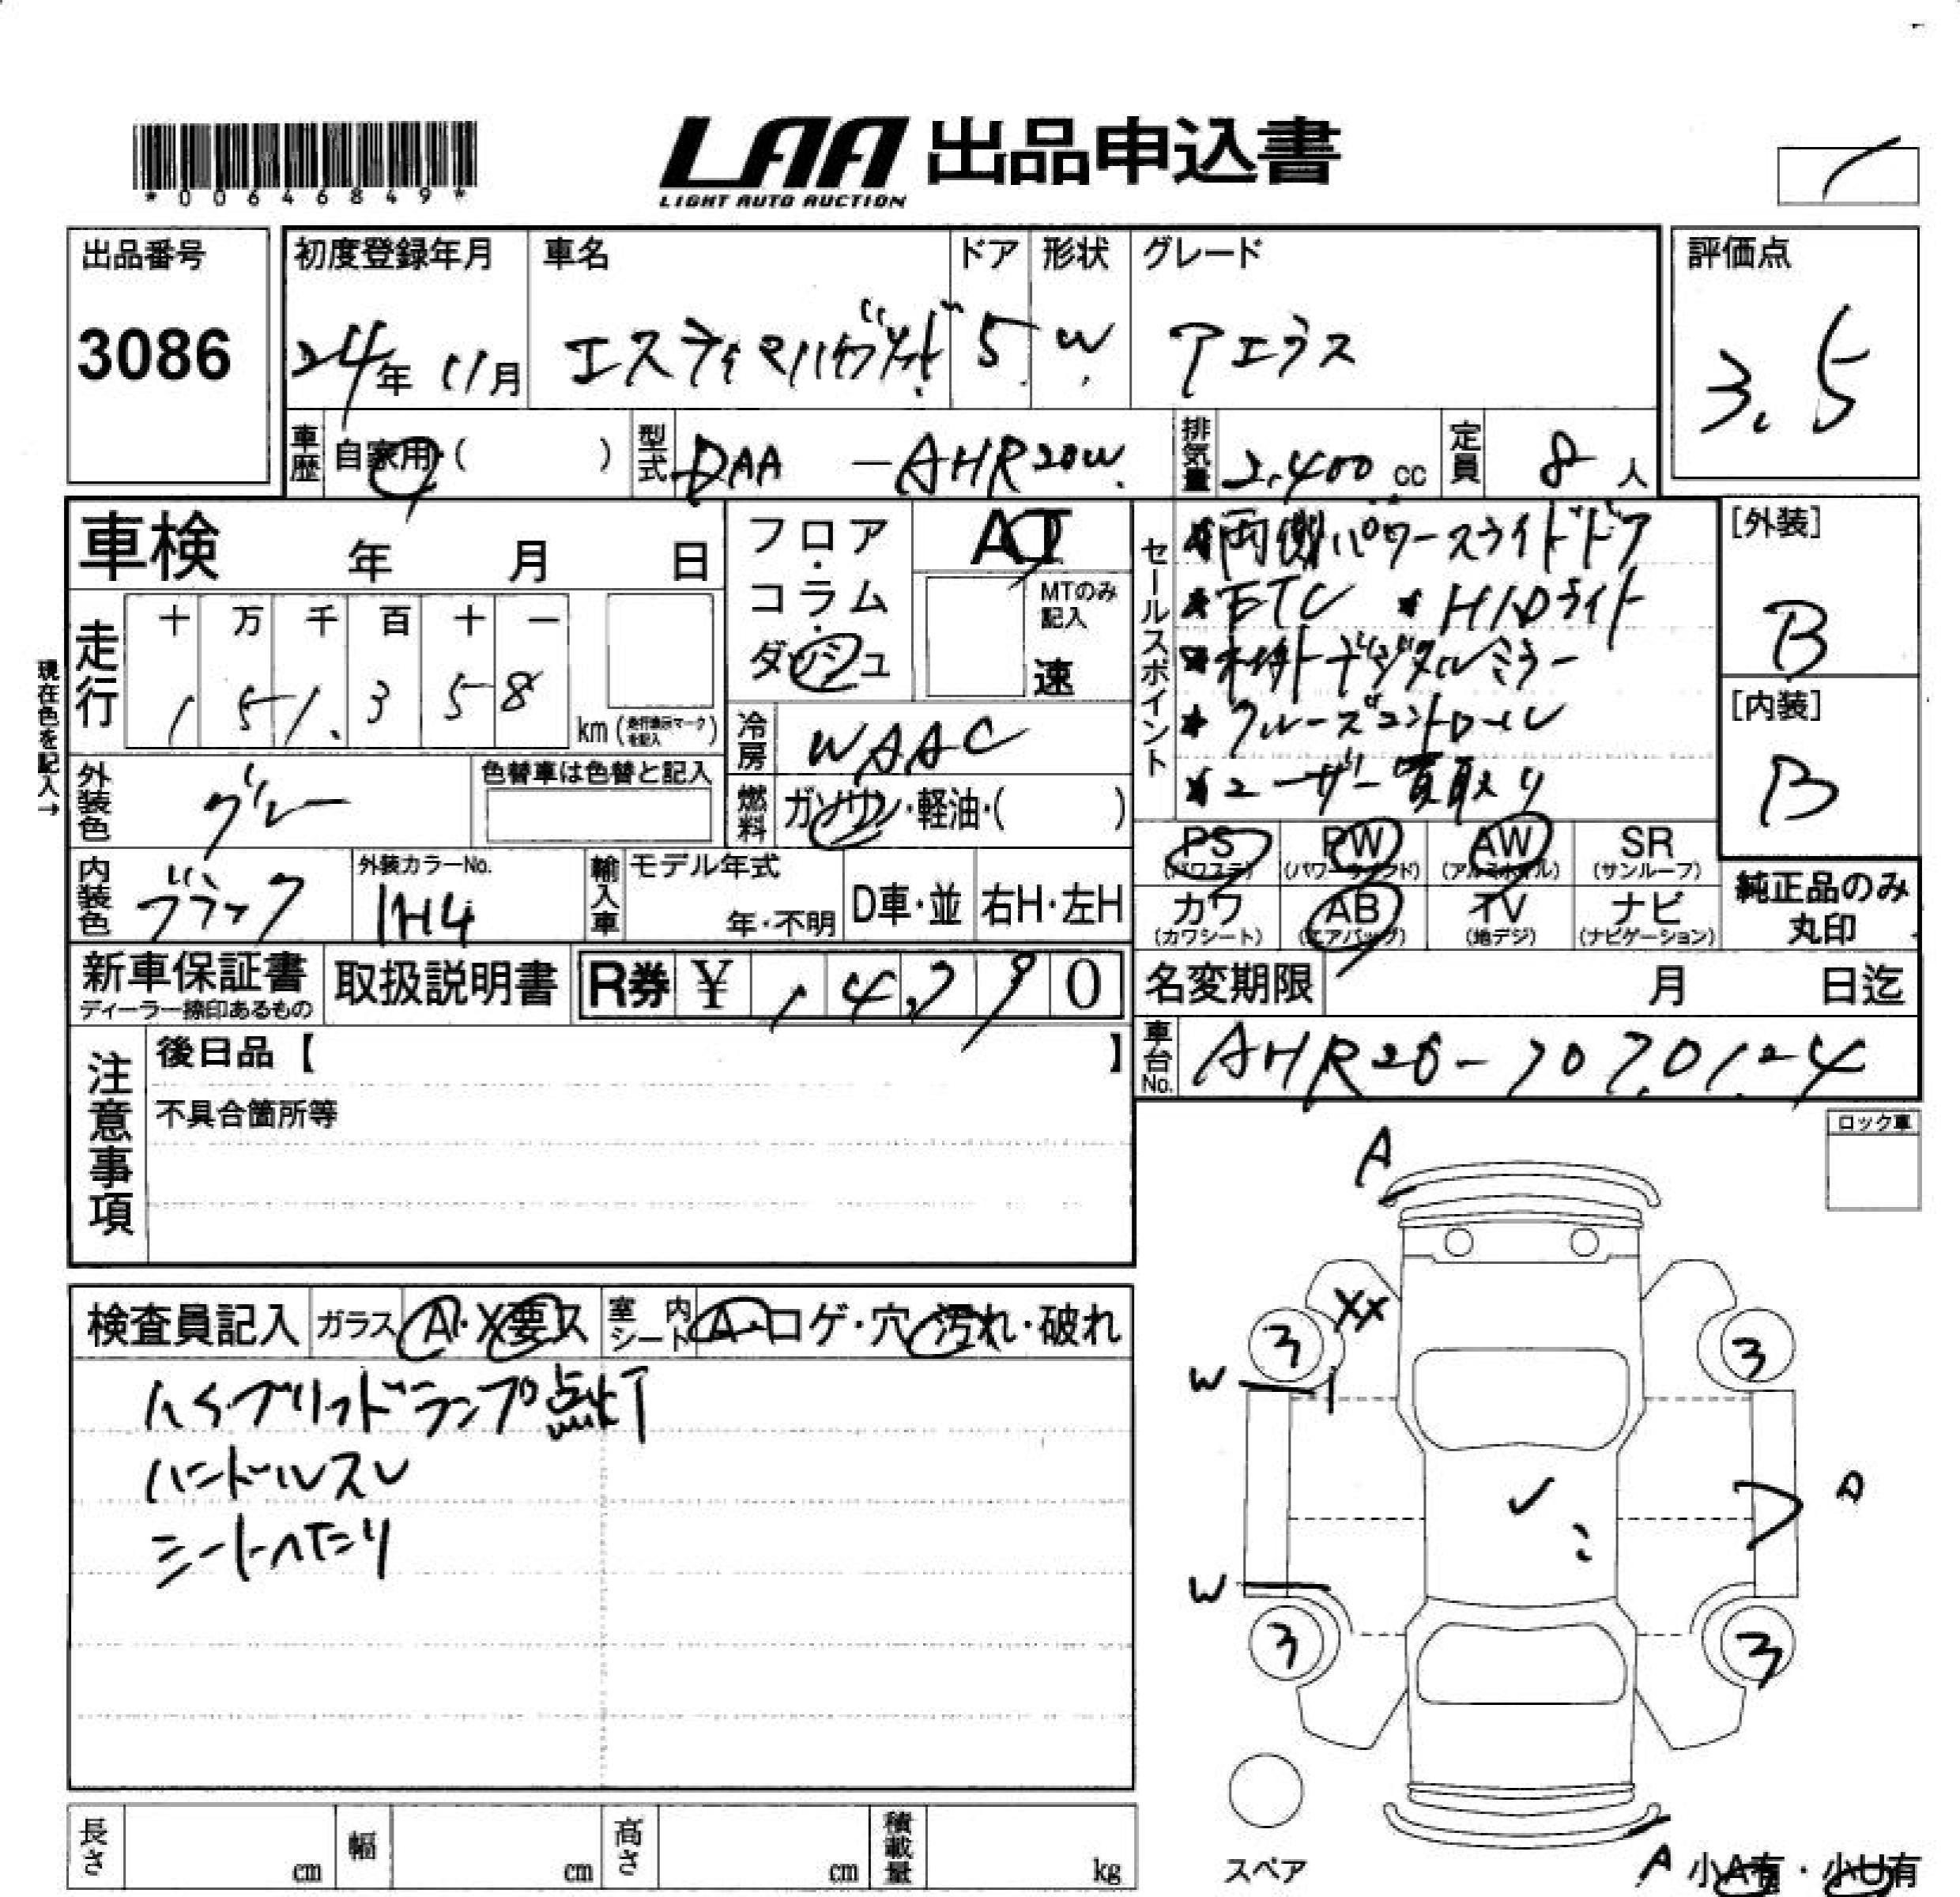 *00646849*
LAA 出品申込書
LIGHT AUTO AUCTION
出品番号
3086
初度登録年月
24年 11月
車名
エスティマハイブリッド
ドア
5
形状
W
グレード
アエラス
評価点
3.5
車歴 自家用・( )
型式 DAA -AHR20W
排気量 2,400 cc
定員 8 人
車検 年 月 日
フロア・コラム・ダッシュ
AT
MTのみ記入
速
セールスポイント
★両側パワースライドドア
★ETC ★HIDライト
★木枠トデジタルミラー
★クルーズコントロール
★ユーザー買取り
[外装]
B
[内装]
B
現在色を記入→
走行
十 万 千 百 十 一
1 5 1. 3 5 8
km (走行表示マークを記入)
冷房 WAAC
燃料 ガソリン・軽油・( )
外装色 グレー
色替車は色替と記入
内装色 ブラック
外装カラーNo.
1H4
輸入車 モデル年式
年・不明
D車・並
右H・左H
PS (パワステ)
PW (パワーウインド)
AW (アルミホイル)
SR (サンルーフ)
カワ (カワシート)
AB (エアバッグ)
TV (地デジ)
ナビ (ナビゲーション)
純正品のみ丸印
新車保証書
ディーラー捺印あるもの
取扱説明書
R券 ¥ 1 4,7 9 0
名変期限 月 日迄
車台No. AHR20-7070124
注意事項
後日品【 】
不具合箇所等
ロック車
検査員記入
ガラス A・X要ス
室内シート A・コゲ・穴・汚れ・破れ
ハイブリッドランプ点灯
ハンドルスレ
シートヘたり
A
XX
3
3
W
A
W
3
3
スペア
A 小A有・小U有
長さ cm
幅 cm
高さ cm
積載量 kg